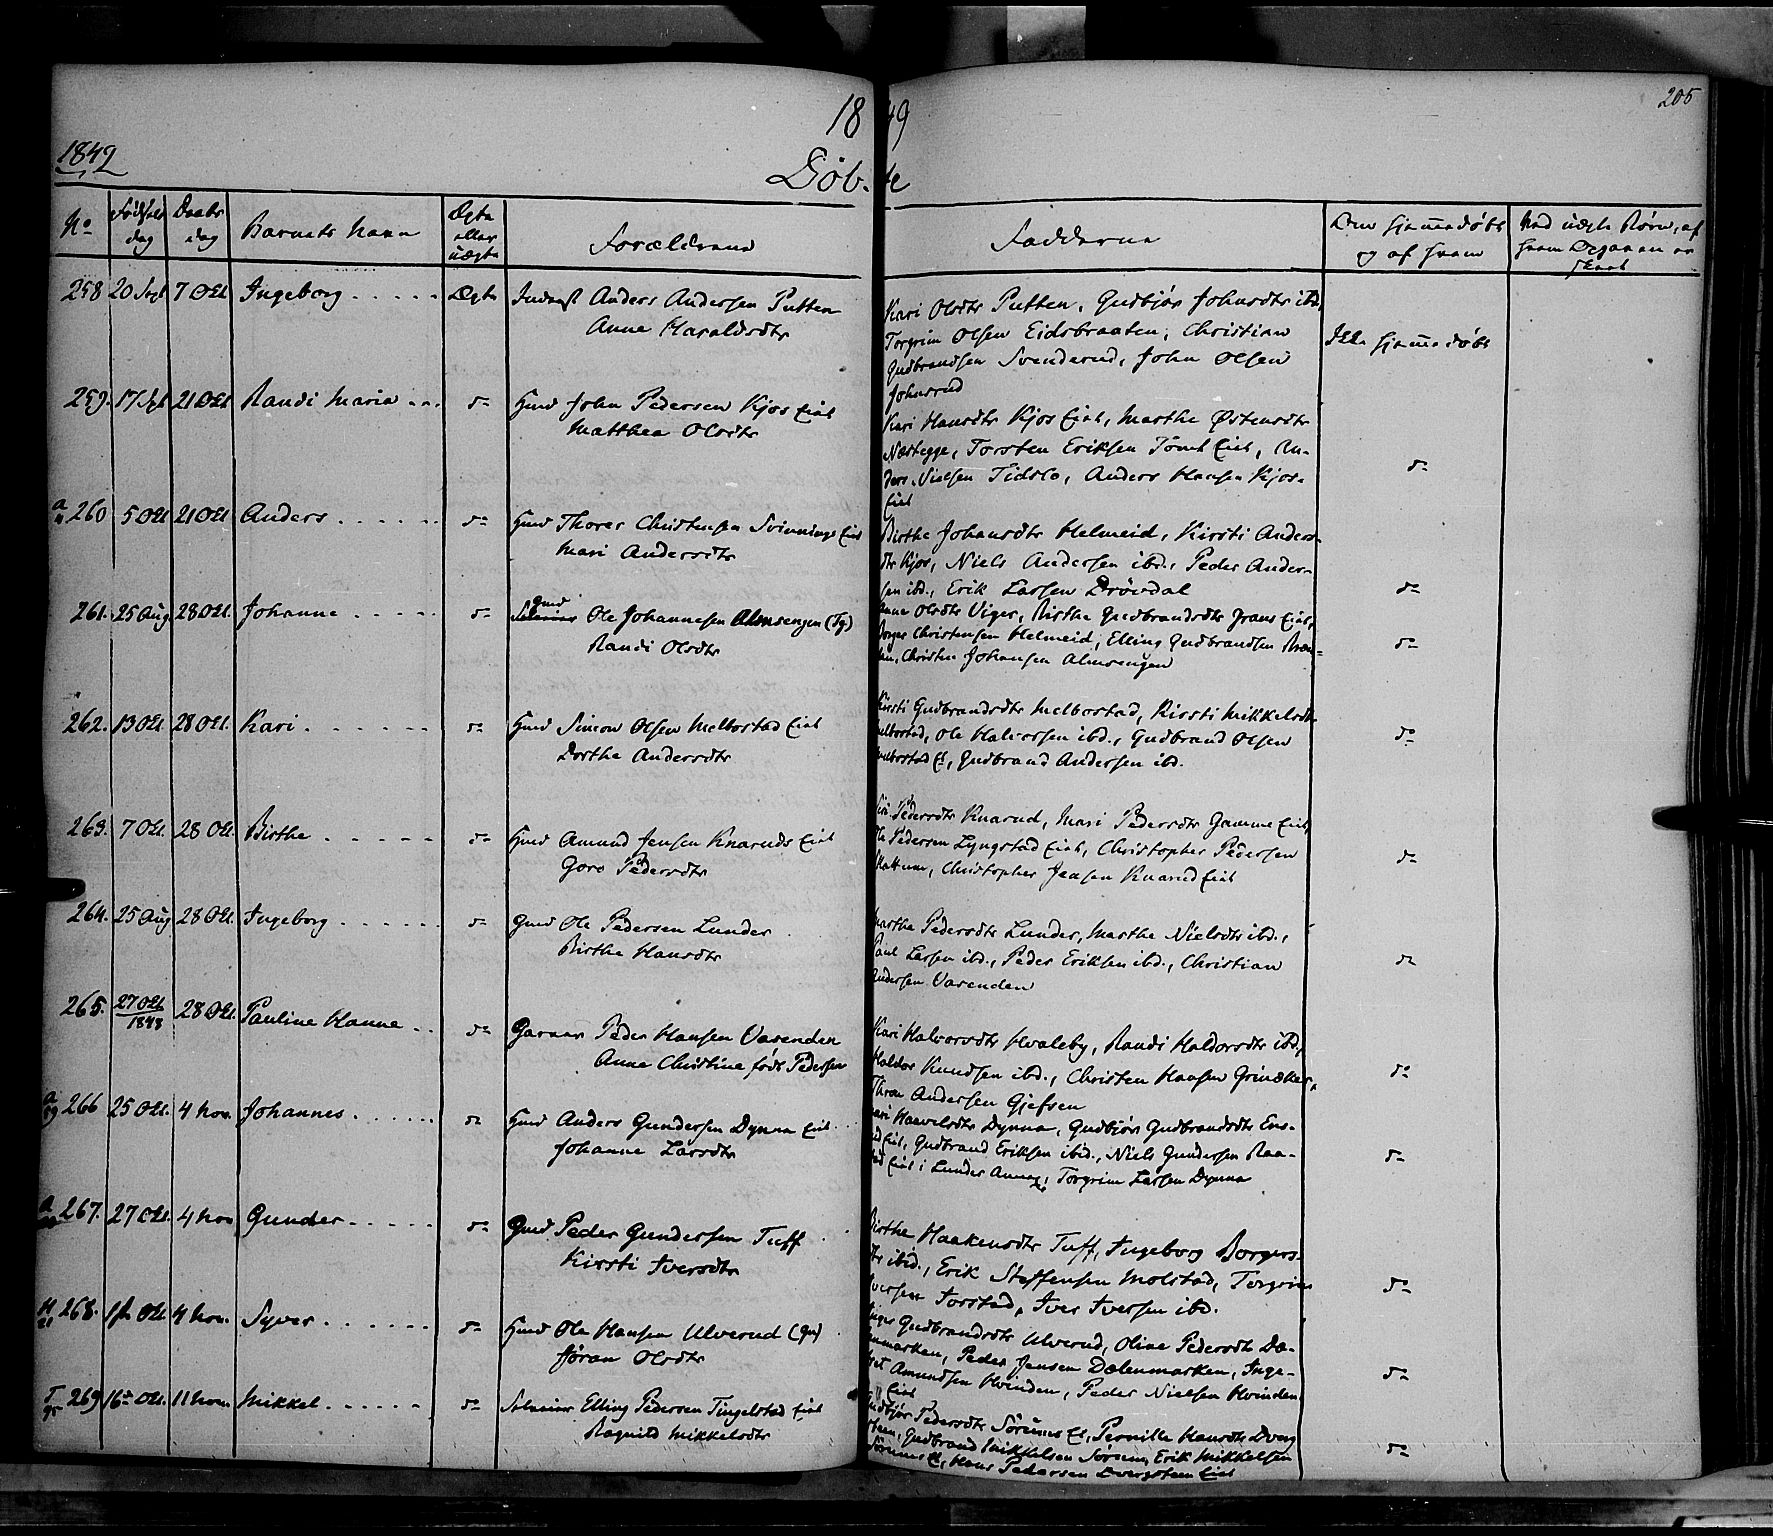 1849
205
1849
Døbte
No
Fødsels dag
Daabs dag
Barnets Navn
Ægte eller uægte
Forældrene
Fadderne
Om hjemmedøbt og af hvem
258 20 Sept 7 Oct Ingeborg Ægte Inderst Anders Andersen Putten
Anne Haraldsdtr
Kari Olsdtr Putten, Gudbjør Johnsdtr ibd,
Torgrim Olsen Eidsbraaten, Christian
Gudbrandsen Svenderud, John Olsen
Johnsrud
Ikke hjemmedøbt
259. 17 Sept 21 Oct Randi Maria do Huusmd John Pedersen Kjos Eiet
Matthea Olsdtr
Kari Hansdtr Kjos Eiet, Marthe Østensdtr
Næstegge, Torsten Eriksen Tømt Eiet, An-
ders Nielsen Tidslo, Anders Hansen Kjos-
Eiet
do
260 5 Oct 21 Oct Anders do Huusmd Thorer Christensen Svinnings Eiet
Mari Andersdtr
Birthe Johansdtr Helmeid, Kirsti Anders-
dtr Kjos, Niels Andersen ibd., Peder Ander-
sen ibd., Erik Larsen Drøvdal
do
261. 25 Aug 28 Oct. Johanne do Gmd Ole Johannesen Almsengen (Tg)
Randi Olsdtr
Anne Olsdtr Viger, Birthe Gudbrandsdtr Grans Eiet,
Borger Christensen Helmeid, Elling Gudbrandsen
Christen Johansen Almsengen
do
262. 13 Oct. 28 Oct. Kari do Huusmd Simon Olsen Melbostad Eiet
Dorthe Andersdtr
Kirsti Gudbrandsdtr Melbostad, Kirsti Mikkelsdtr
Melbostad, Ole Halvorsen ibd., Gudbrand Olsen
Melbostad Et, Gudbrand Andersen ibd.
do
263. 7 Oct. 28 Oct. Birthe do Huusmd Amund Jensen Knaruds Eiet
Goro Pedersdtr
Siri Pedersdtr Knarud, Mari Pedersdtr Gamme Eiet,
Ole Pedersen Lyngstad Eiet, Christopher Pedersen
Christopher Jensen Knarud Eiet
do
264. 25 Aug 28 Oct. Ingeborg do Gmd Ole Pedersen Lunder
Birthe Hansdtr
Marthe Pedersdtr Lunder, Marthe Nielsdtr ibd.,
Paul Larsen ibd., Peder Eriksen ibd., Christian
Andersen Vasenden
do
265. 27 Oct 1848 28 Oct. Pauline Hanne do Garver Peder Hansen Vasenden
Anne Christine født Pedersen
Kari Halvorsdtr Hvaleby, Randi Haldorsdtr ibd.,
Haldor Knudsen ibd., Christen Hansen Grinaker,
Thron Andersen Gjefsen
do
266 25 Oct. 4 Nov. Johannes do Huusmd Anders Gundersen Dynna Eiet
Johanne Larsdtr
Kari Haavelsdtr Dynna, Gudbjør Gudbrandsdtr Ens-
rud Eiet, Gudbrand Eriksen ibid., Niels Gundersen Raa-
stad Eiet i Lunder Annex, Torgrim Larsen Dynna
do
267. 27 Oct. 4 Nov Gunder do Gmd Peder Gundersen Tuff
Kirsti Iversdtr
Birthe Haakensdtr Tuff, Ingeborg Borgers-
dtr ibid., Erik Steffensen Molstad, Torgrim
Iversen Torstad, Iver Iversen ibd.
do
268. Oct 4 Nov. Syver do Huusmd Ole Hansen Ulverud (Gn)
Jøran Olsdtr
Inger Gudbrandsdtr Ulverud, Oline Pedersdtr Dæ-
lenmarken, Peder Jensen Dælenmarken, Inge-
bret Amundsen Hvinden, Peder Nielsen Hvinden
Eiet
do
269 16de Oct. 11 Nov. Mikkel do Selveier Elling Pedersen Tingelstad Eiet
Ragnild Mikkelsdtr
Gudbjør Pedersdtr Sørums Et, Pernille Hansdtr Dverg-
steen, Gudbrand Mikkelsen Sørum, Erik Mikkelsen
Sørums Et, Hans Pedersen Dvergsteen Eiet
do